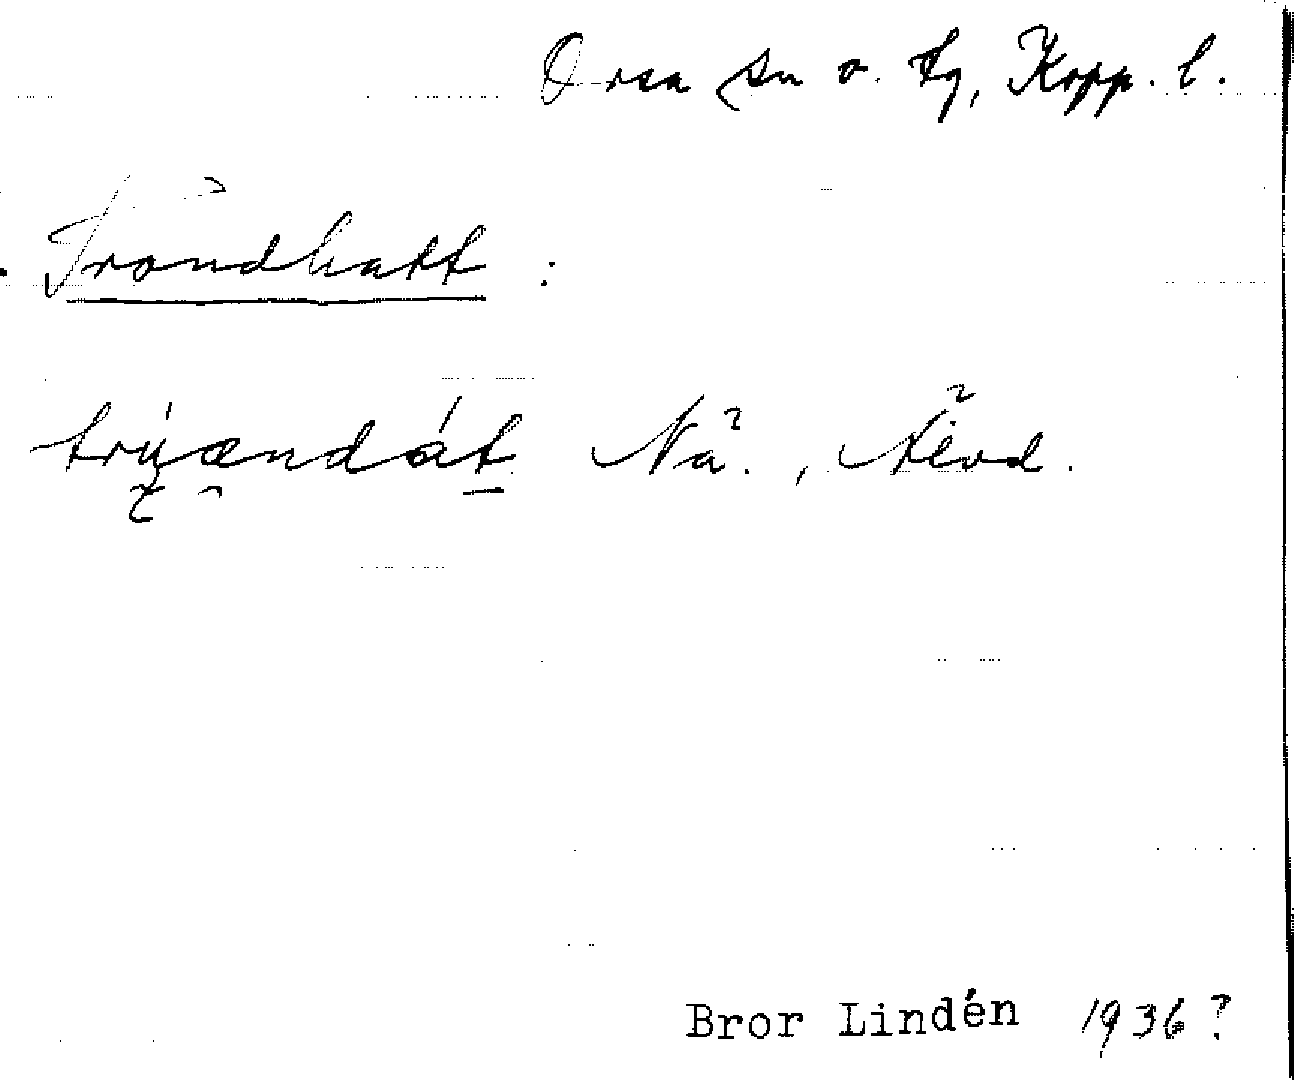 Orsa sn o. tg, Kopp. l.
Trondhatt :
trúændát Nä., Älvd.
Bror Lindén 1936?